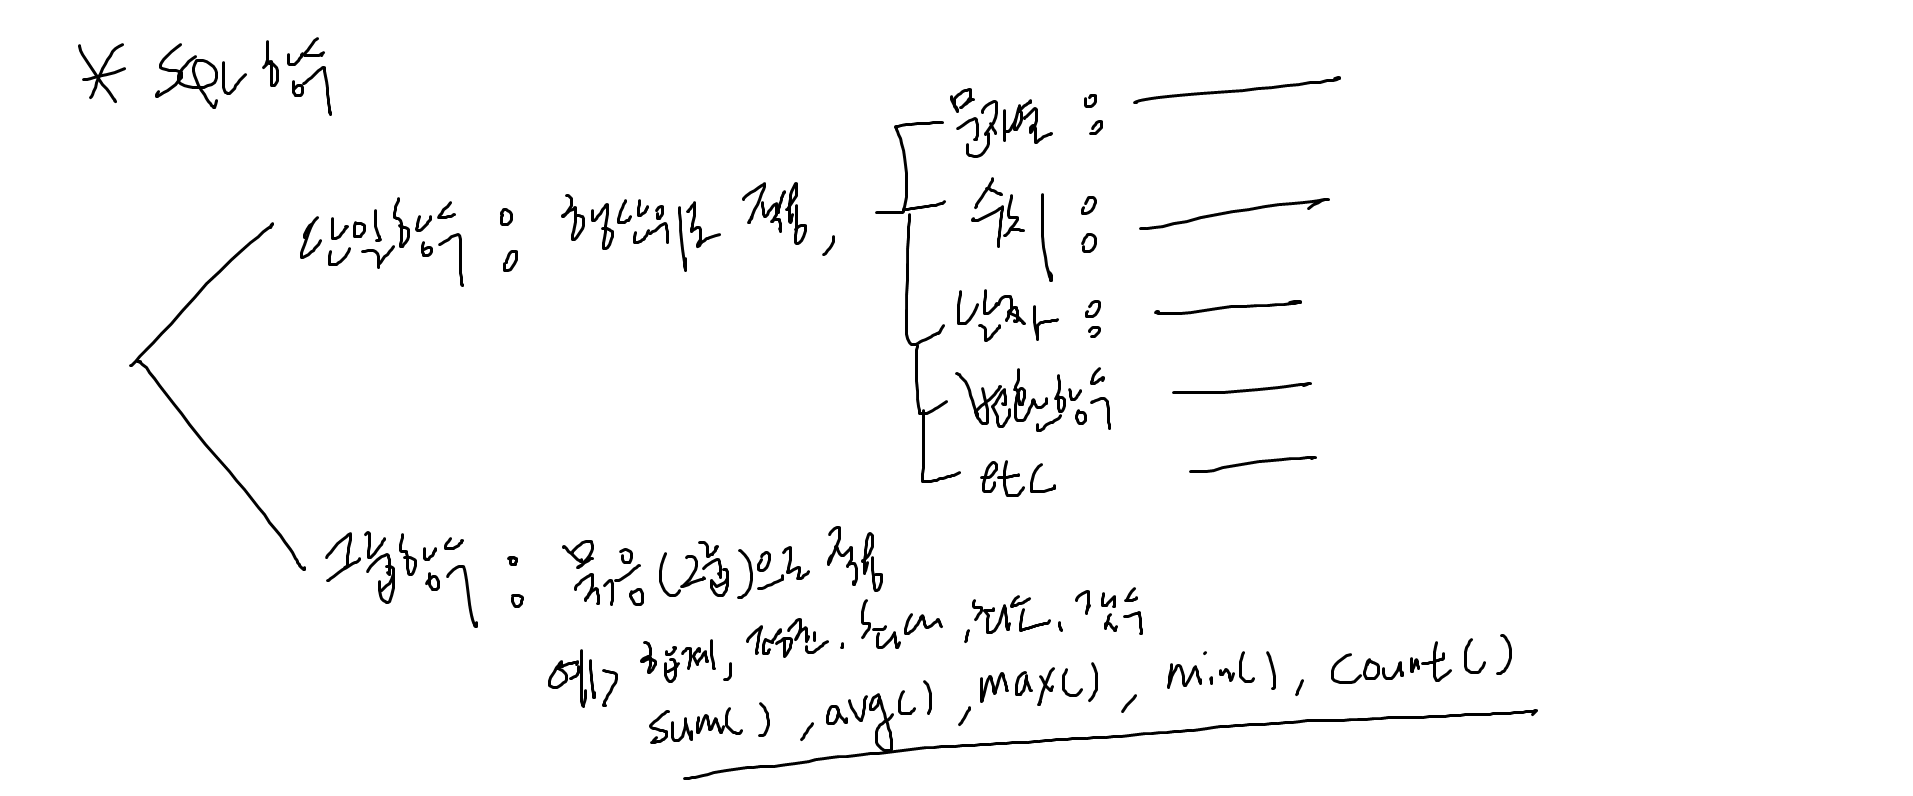 * SQL 함수
단일함수 : 행단위로 적용,
문자열 :
수치 :
날짜 :
변환함수
etc
그룹함수 : 묶음(그룹)으로 적용
예> 합계, 평균, 최대, 최소, 갯수
sum( ), avg( ), max( ), min( ), count( )